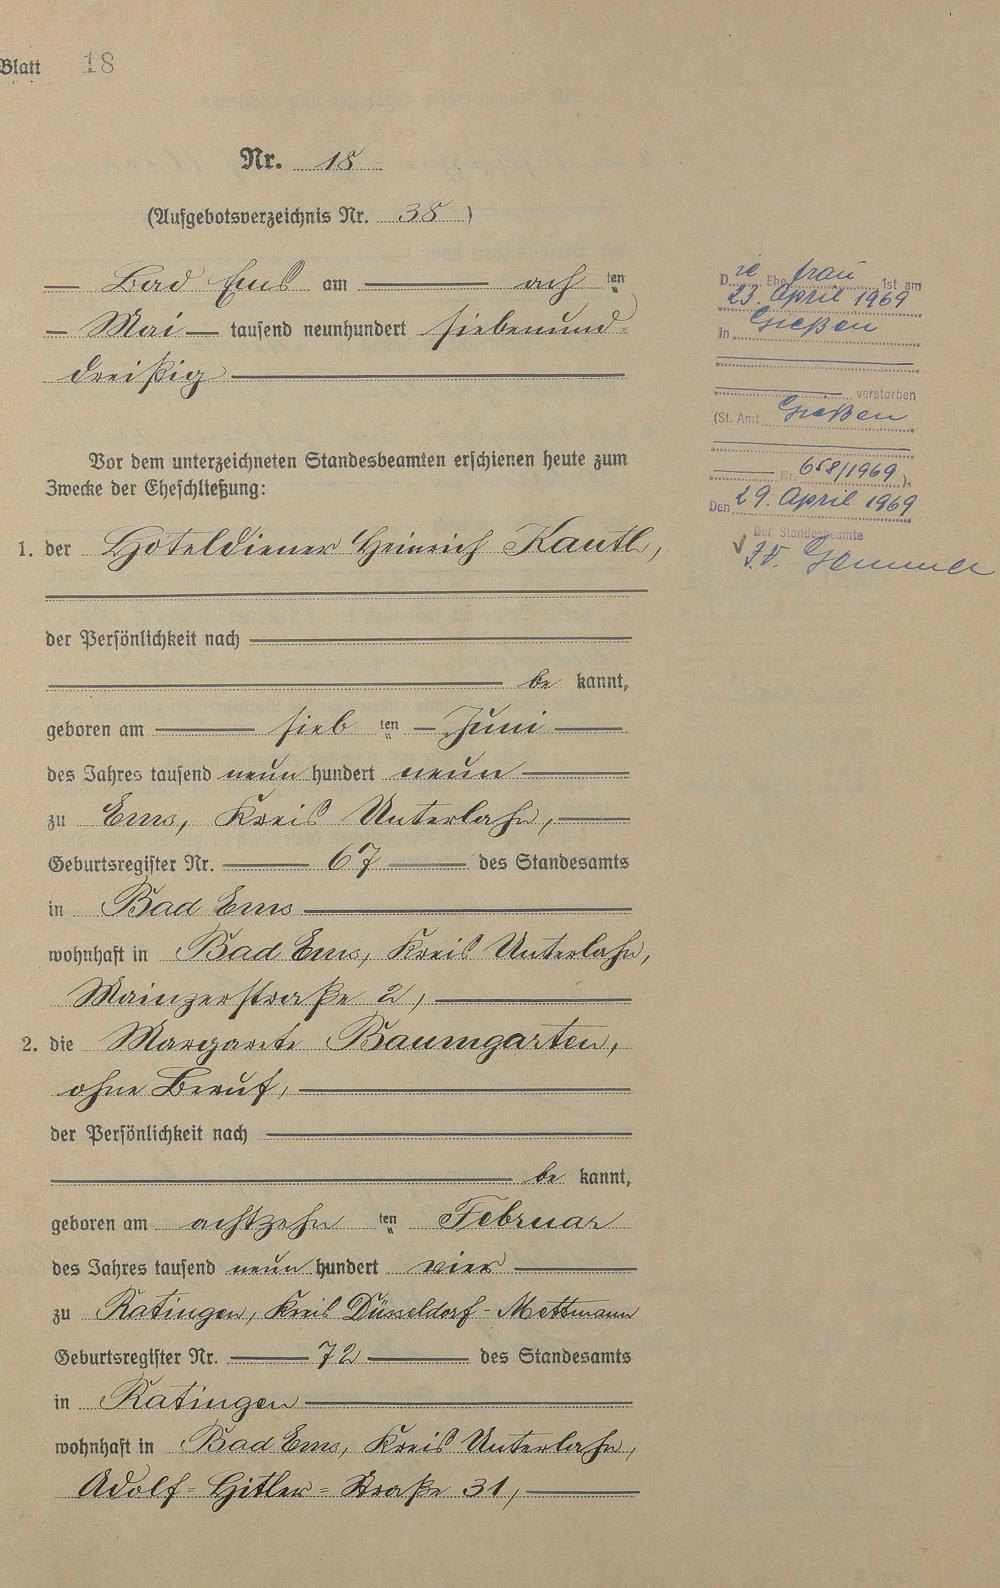 Blatt 18
Nr. 18
(Aufgebotsverzeichnis Nr. 38)
Bad Ems am ach ten
Mai tausend neunhundert siebenund=
dreißig
Vor dem unterzeichneten Standesbeamten erschienen heute zum
Zwecke der Eheschließung:
1. der Hoteldiener Heinrich Kautl,
der Persönlichkeit nach
be kannt,
geboren am sieb ten Juni
des Jahres tausend neun hundert neun
zu Ems, Kreis Unterlahn,
Geburtsregister Nr. 67 des Standesamts
in Bad Ems
wohnhaft in Bad Ems, Kreis Unterlahn,
Mainzerstraße 2,
2. die Margarete Baumgarten,
ohne Beruf,
der Persönlichkeit nach
be kannt,
geboren am achtzehn ten Februar
des Jahres tausend neun hundert vier
zu Ratingen, Kreis Düsseldorf-Mettmann
Geburtsregister Nr. 72 des Standesamts
in Ratingen
wohnhaft in Bad Ems, Kreis Unterlahn,
Adolf=Hitler=Straße 31,
Die Ehefrau ist am
23. April 1969
in Gießen
verstorben
(St. Amt Gießen
Nr. 658/1969).
Den 29. April 1969
Der Standesbeamte
I.V.